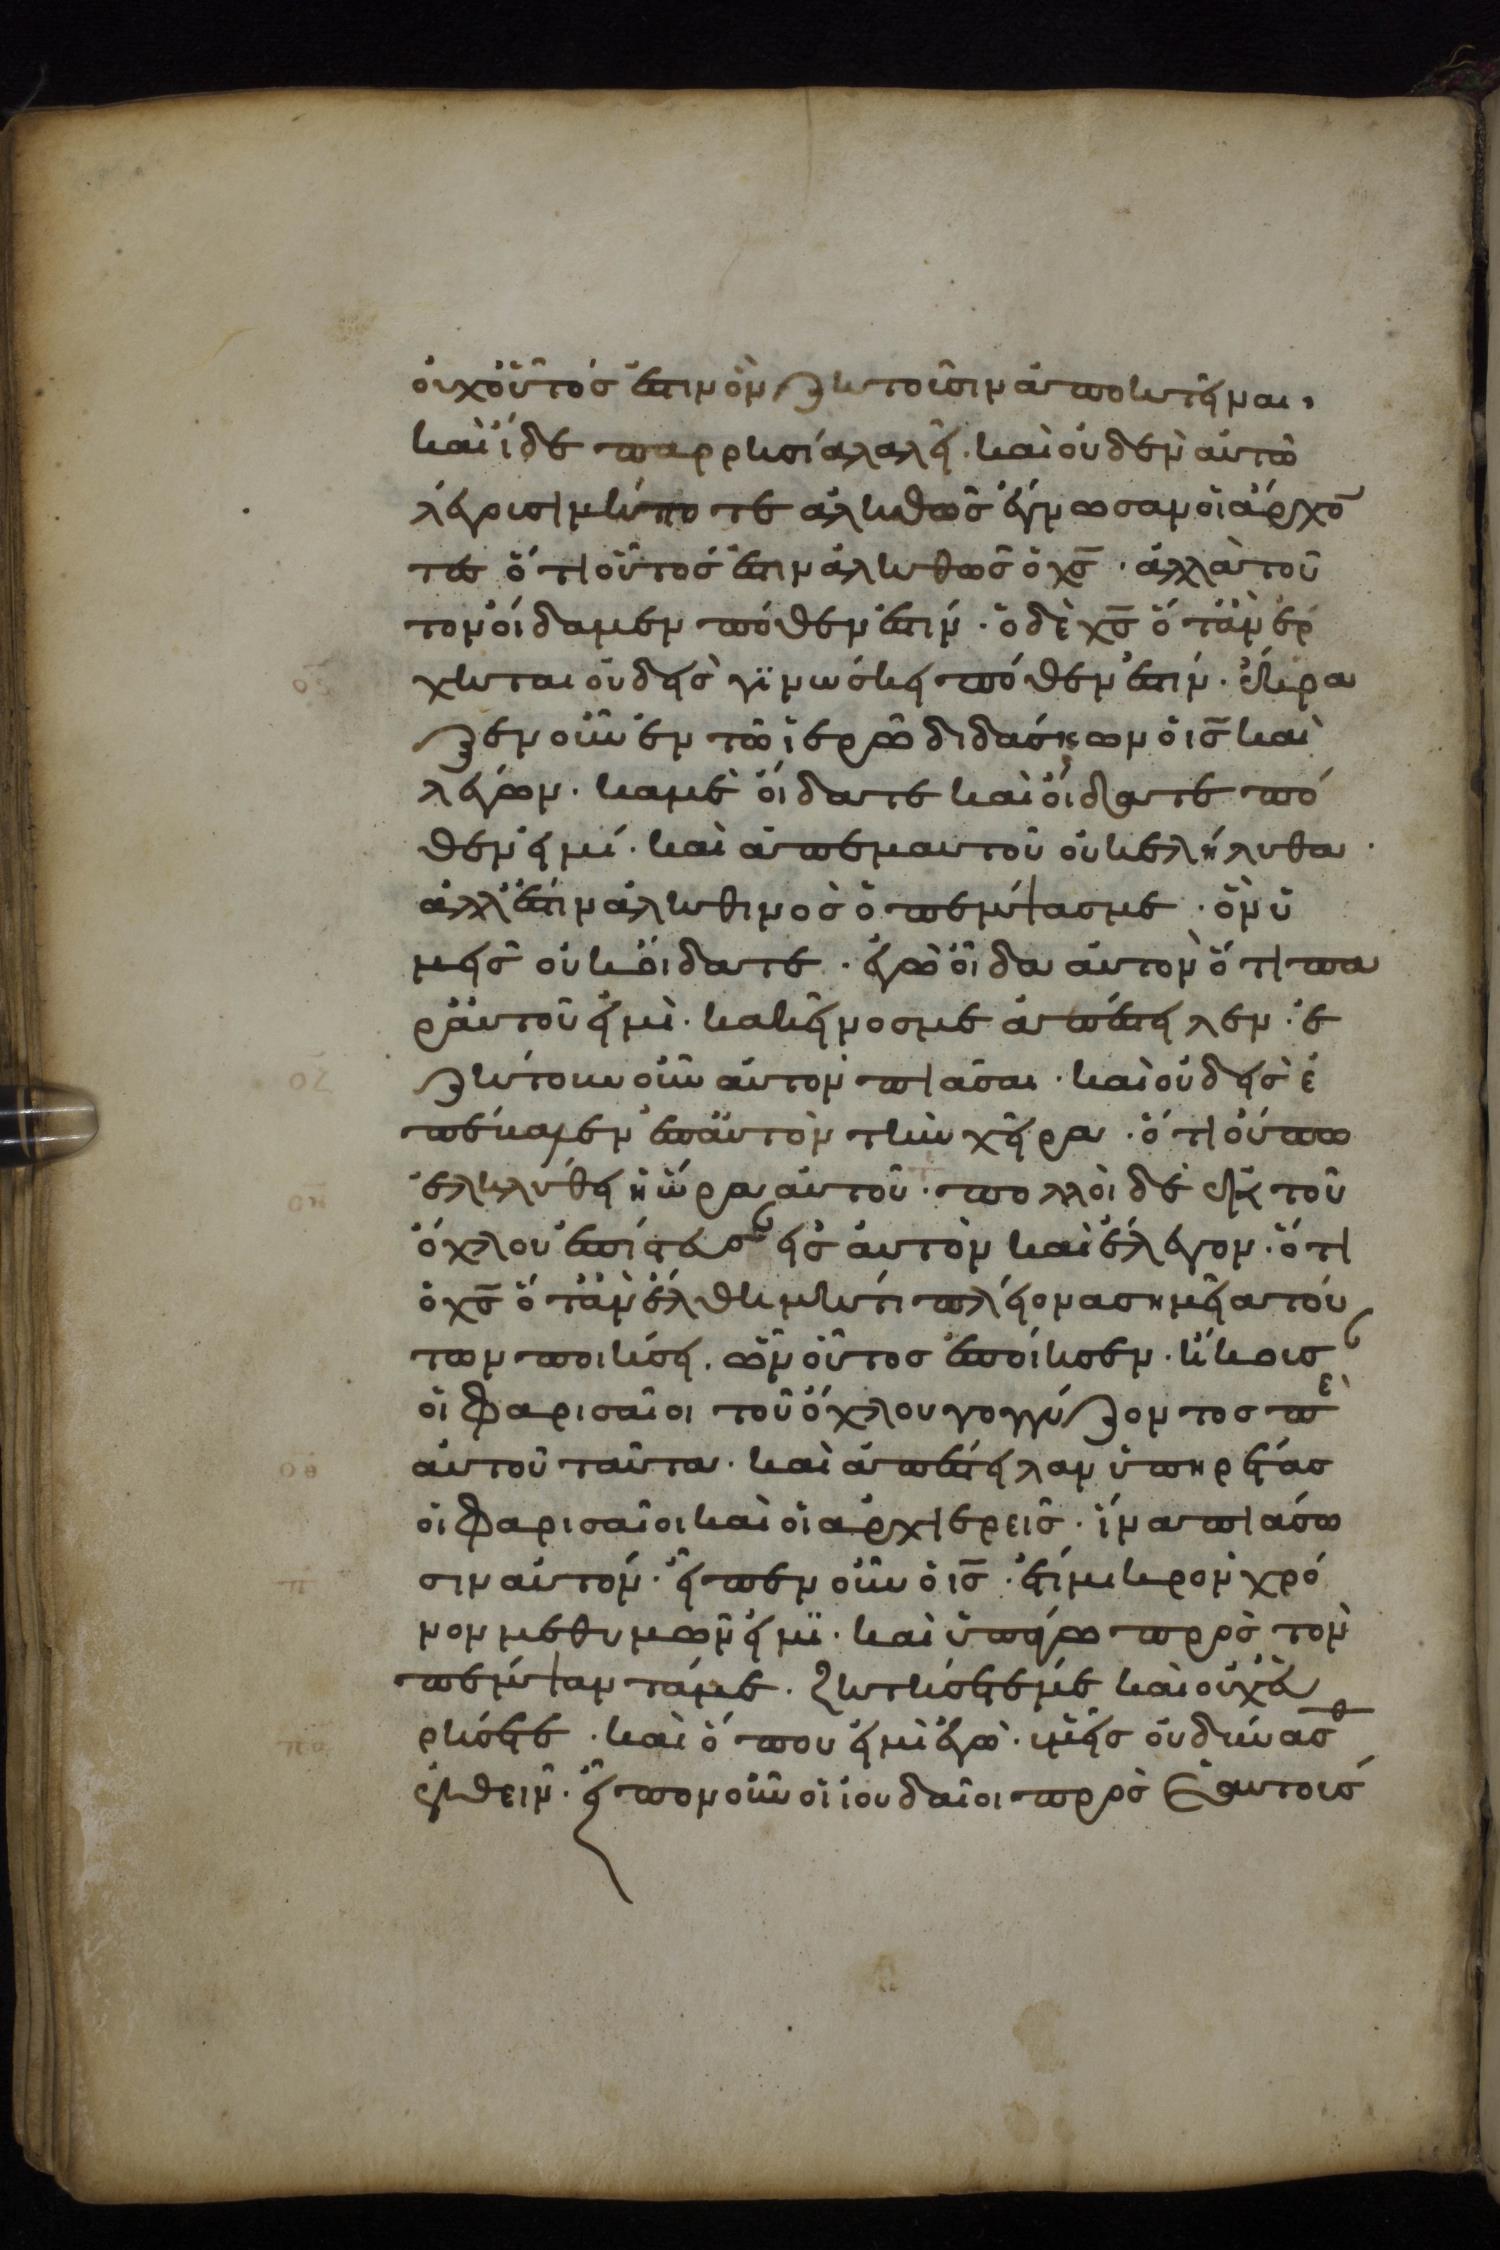 οὐχ οὗτός ἐστιν ὃν ζητοῦσιν ἀποκτεῖναι,
καὶ ἴδε παρρησία λαλεῖ· καὶ οὐδὲν αὐτῶ
λέγουσι μήποτε ἀληθῶς ἔγνωσαν οἱ ἄρχο̅
τες ὅτι οὗτός ἐστιν ἀληθῶς ὁ χς̅· ἀλλὰ τοῦ
τον οἴδαμεν πόθεν ἐστίν· ὁ δὲ χς̅ ὅταν ἔρ
χηται οὐδεὶς γινώσκει πόθεν ἐστίν· ἔκρα
ζεν οὖν ἐν τῶ ἱερῶ διδάσκων ὁ ις̅ καὶ
λέγων· καμὲ οἴδατε καὶ οἴδατε πό
θεν εἰμί· καὶ ἀπεμαυτοῦ οὐκ ἐλήλυθα·
ἀλλ ἔστιν ἀληθινὸς ὁ πέμψας με· ὃν ὑ
μεῖς οὐκ οἴδατε· ἐγὼ οἶδα αὐτὸν ὅτι πα
ρ αὐτοῦ εἰμὶ· κακεῖνος με ἀπέστειλεν· ἐ
ζήτουν οὖν αὐτὸν πιάσαι· καὶ οὐδεὶς ἐ
πέβαλεν ἐπ αὐτὸν τὴν χεῖρα· ὅτι οὔπω
ἐληλύθει ἡ ὥρα αὐτοῦ· πολλοὶ δὲ ἐκ τοῦ
ὄχλου ἐπίστευσ εἰς αὐτὸν καὶ ἔλεγον· ὅτι
ὁ χς̅ ὅταν ἔλθη μήτι πλείονα σημεῖα τού
των ποιήσει. ὧν οὗτος ἐποίησεν· ἤκουσ
οἱ φαρισαῖοι τοῦ ὄχλου γογγύζοντος πε
αὐτοῦ ταῦτα· καὶ ἀπέστειλαν ὑπηρέτας
οἱ φαρισαῖοι καὶ οἱ ἀρχιερεῖς· ἵνα πιάσω
σιν αὐτόν· εἶπεν οὖν ὁ ις̅· ἔτι μικρὸν χρό
νον μεθ υμῶν εἰμι· καὶ ὑπάγω πρὸς τὸν
πέμψαντά με. ζητήσετέ με καὶ οὐχ εὑ
ρήσετε· καὶ ὅπου εἰμὶ ἐγὼ· ὑμεῖς οὐ δύνασθ
ἐλθεῖν· εἶπον οὖν οἱ ἰουδαῖοι πρὸς ἑαυτούς
ος̅
οζ̅
οη̅
οθ̅
π̅
πα̅